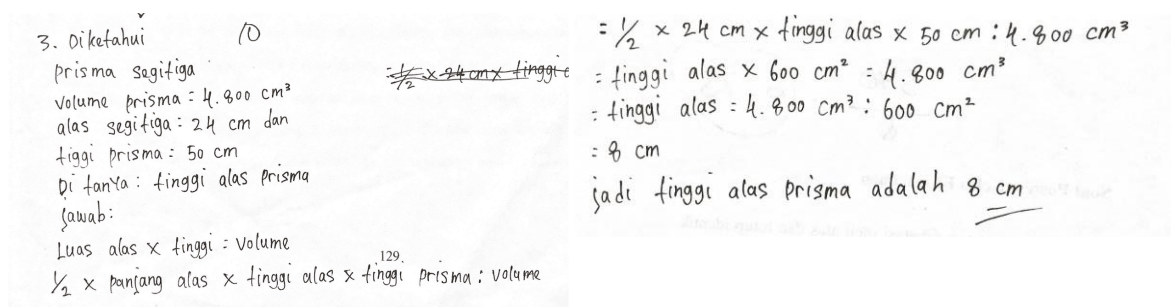 3. Diketahui
10
prisma segitiga
volume prisma = 4.800 cm³
alas segitiga = 24 cm dan
tiggi prisma = 50 cm
Di tanya : tinggi alas prisma
Jawab :
Luas alas x tinggi = Volume
129.
1/2 x panjang alas x tinggi alas x tinggi prisma = volume
= 1/2 x 24 cm x tinggi
= 1/2 x 24 cm x tinggi alas x 50 cm = 4.800 cm³
= tinggi alas x 600 cm² = 4.800 cm³
= tinggi alas = 4.800 cm³ : 600 cm²
= 8 cm
jadi tinggi alas prisma adalah 8 cm